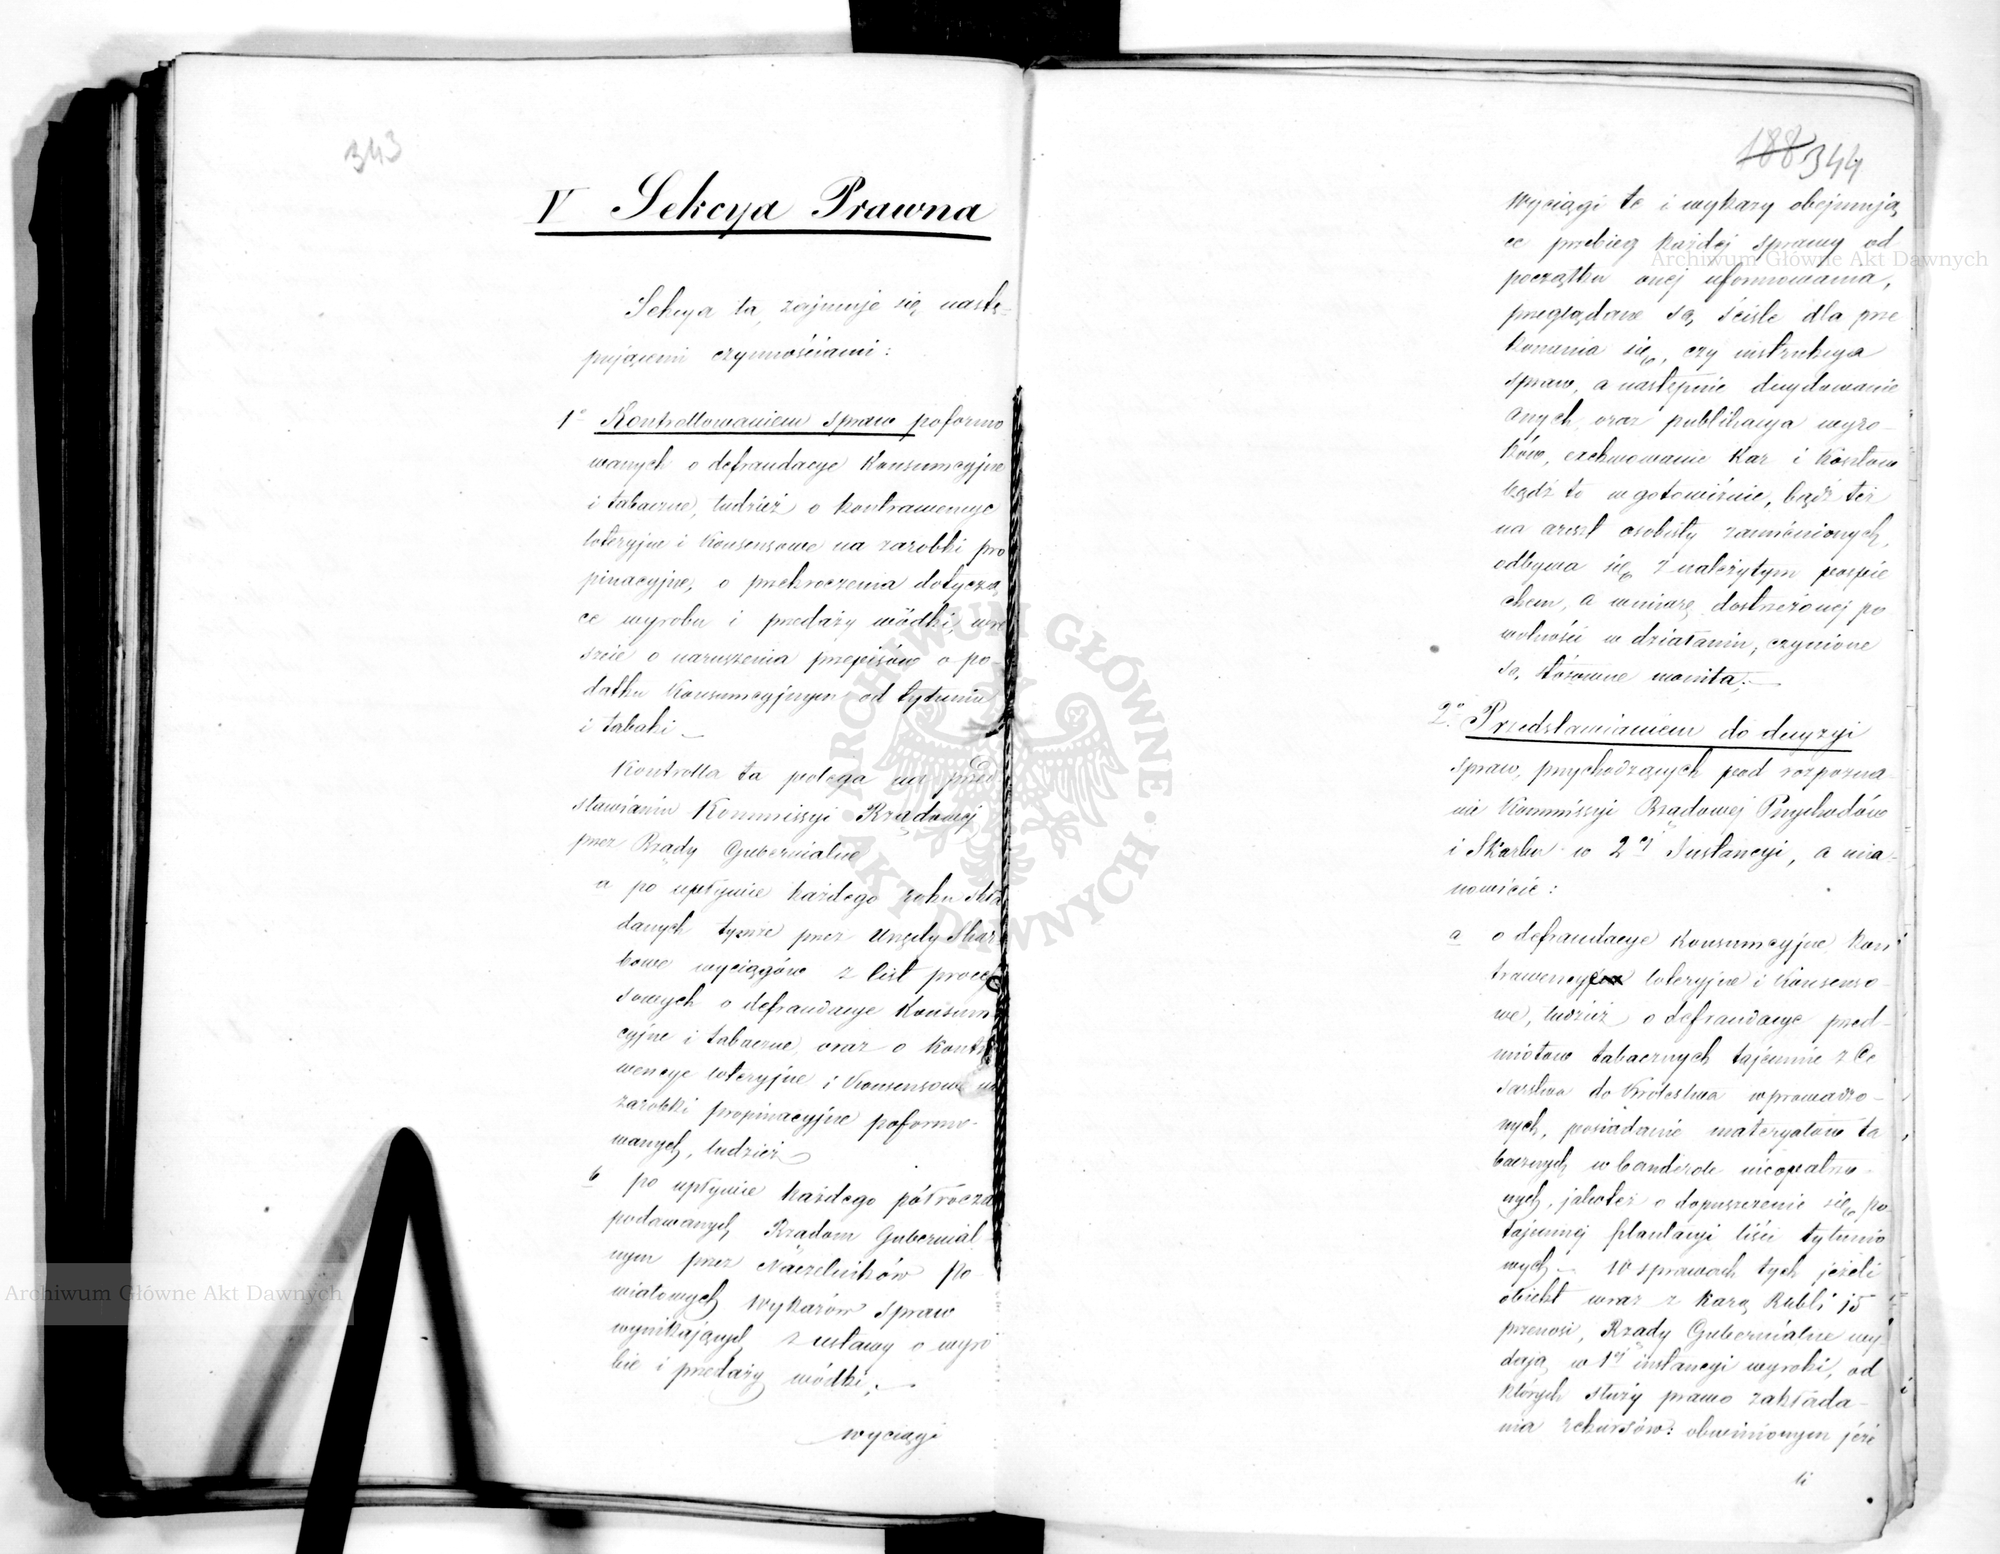 343
V Sekcya Prawna
Sekcya ta, zajmuje się nastę-
pującemi czynnościami:
1o Kontrollowaniem spraw poformo
wanych o defraudacye Konsumcyjne
i tabaczne, tudzież o kontrawencye
loteryjne i Konsensowe na zarobki pro
pinacyjne, o przekroczenia dotyczą
ce wyrobu i przedaży wódki, wre
szcie o naruszenia przepisów o po-
datku Konsumcyjnym od tytuniu
i tabaki –
Kontrolla ta polega na przed
stawianiu Kommissyi Rządowej
przez Rządy Gubernialne
a po upłynie każdego roku skła
danych tymże przez Urzędy Skar
bowe wyciągów z list proces
sowych o defraudacye Konsum
cyjne i tabaczne, oraz o Kontra
wencye loteryjne i Konsensowe na
zarobki propinacyjne poformo-
wanych, tudzież
b po upłynie każdego półrocza
podawanych Rządom Gubernial
nym przez Naczelników Po-
wiatowych Wykazów spraw
wynikających z ustawy o wyro
bie i przedaży wódki. –
wyciągi
188 344
Wyciągi te i wykazy obejmują
ce przebieg każdej sprawy od
początku onej uformowania,
przeglądane są, ściśle dla prze
konania się, czy instrukcya
spraw, a następnie decydowanie
onych, oraz publikacya wyro-
ków, exekwowanie Kar i Kosztów
bądź to w gotowiźnie, bądź też
na areszt osobisty zamienionych,
odbywa się z należytym pospie
chem, a wmiarę dostrzeżonej po
wolności w działaniu, czynione
są, stósowne monita. –
2o Przedstawianiem do decyzyi
spraw, przychodzących pod rozpozna-
nie Kommissyi Rządowej Przychodów
i Skarbu w 2ej Instancyi, a mia-
nowicie:
a o defraudacye Konsumcyjne, kon
trawencye loteryjne i Konsenso-
we, tudzież o defraudacye przed-
miotów tabacznych tajemnie z Ce
sarstwa do Królestwa wprowadzo-
nych, posiadanie materyałów ta
bacznych w banderole nieopatrzo-
nych, jakoteż o dopuszczenie się po-
tajemnej plantacyi liści tytunio
wych – W sprawach tych jeżeli
obiekt wraz z Karą Rubli 15
przenosi, Rządy Gubernialne wy-
dają w 1ej instancyi wyroki, od
których służy prawo zakłada-
nia rekursów: obwinionym jeże
li
Archiwum Główne Akt Dawnych
Archiwum Główne Akt Dawnych
ARCHIWUM GŁÓWNE AKT DAWNYCH